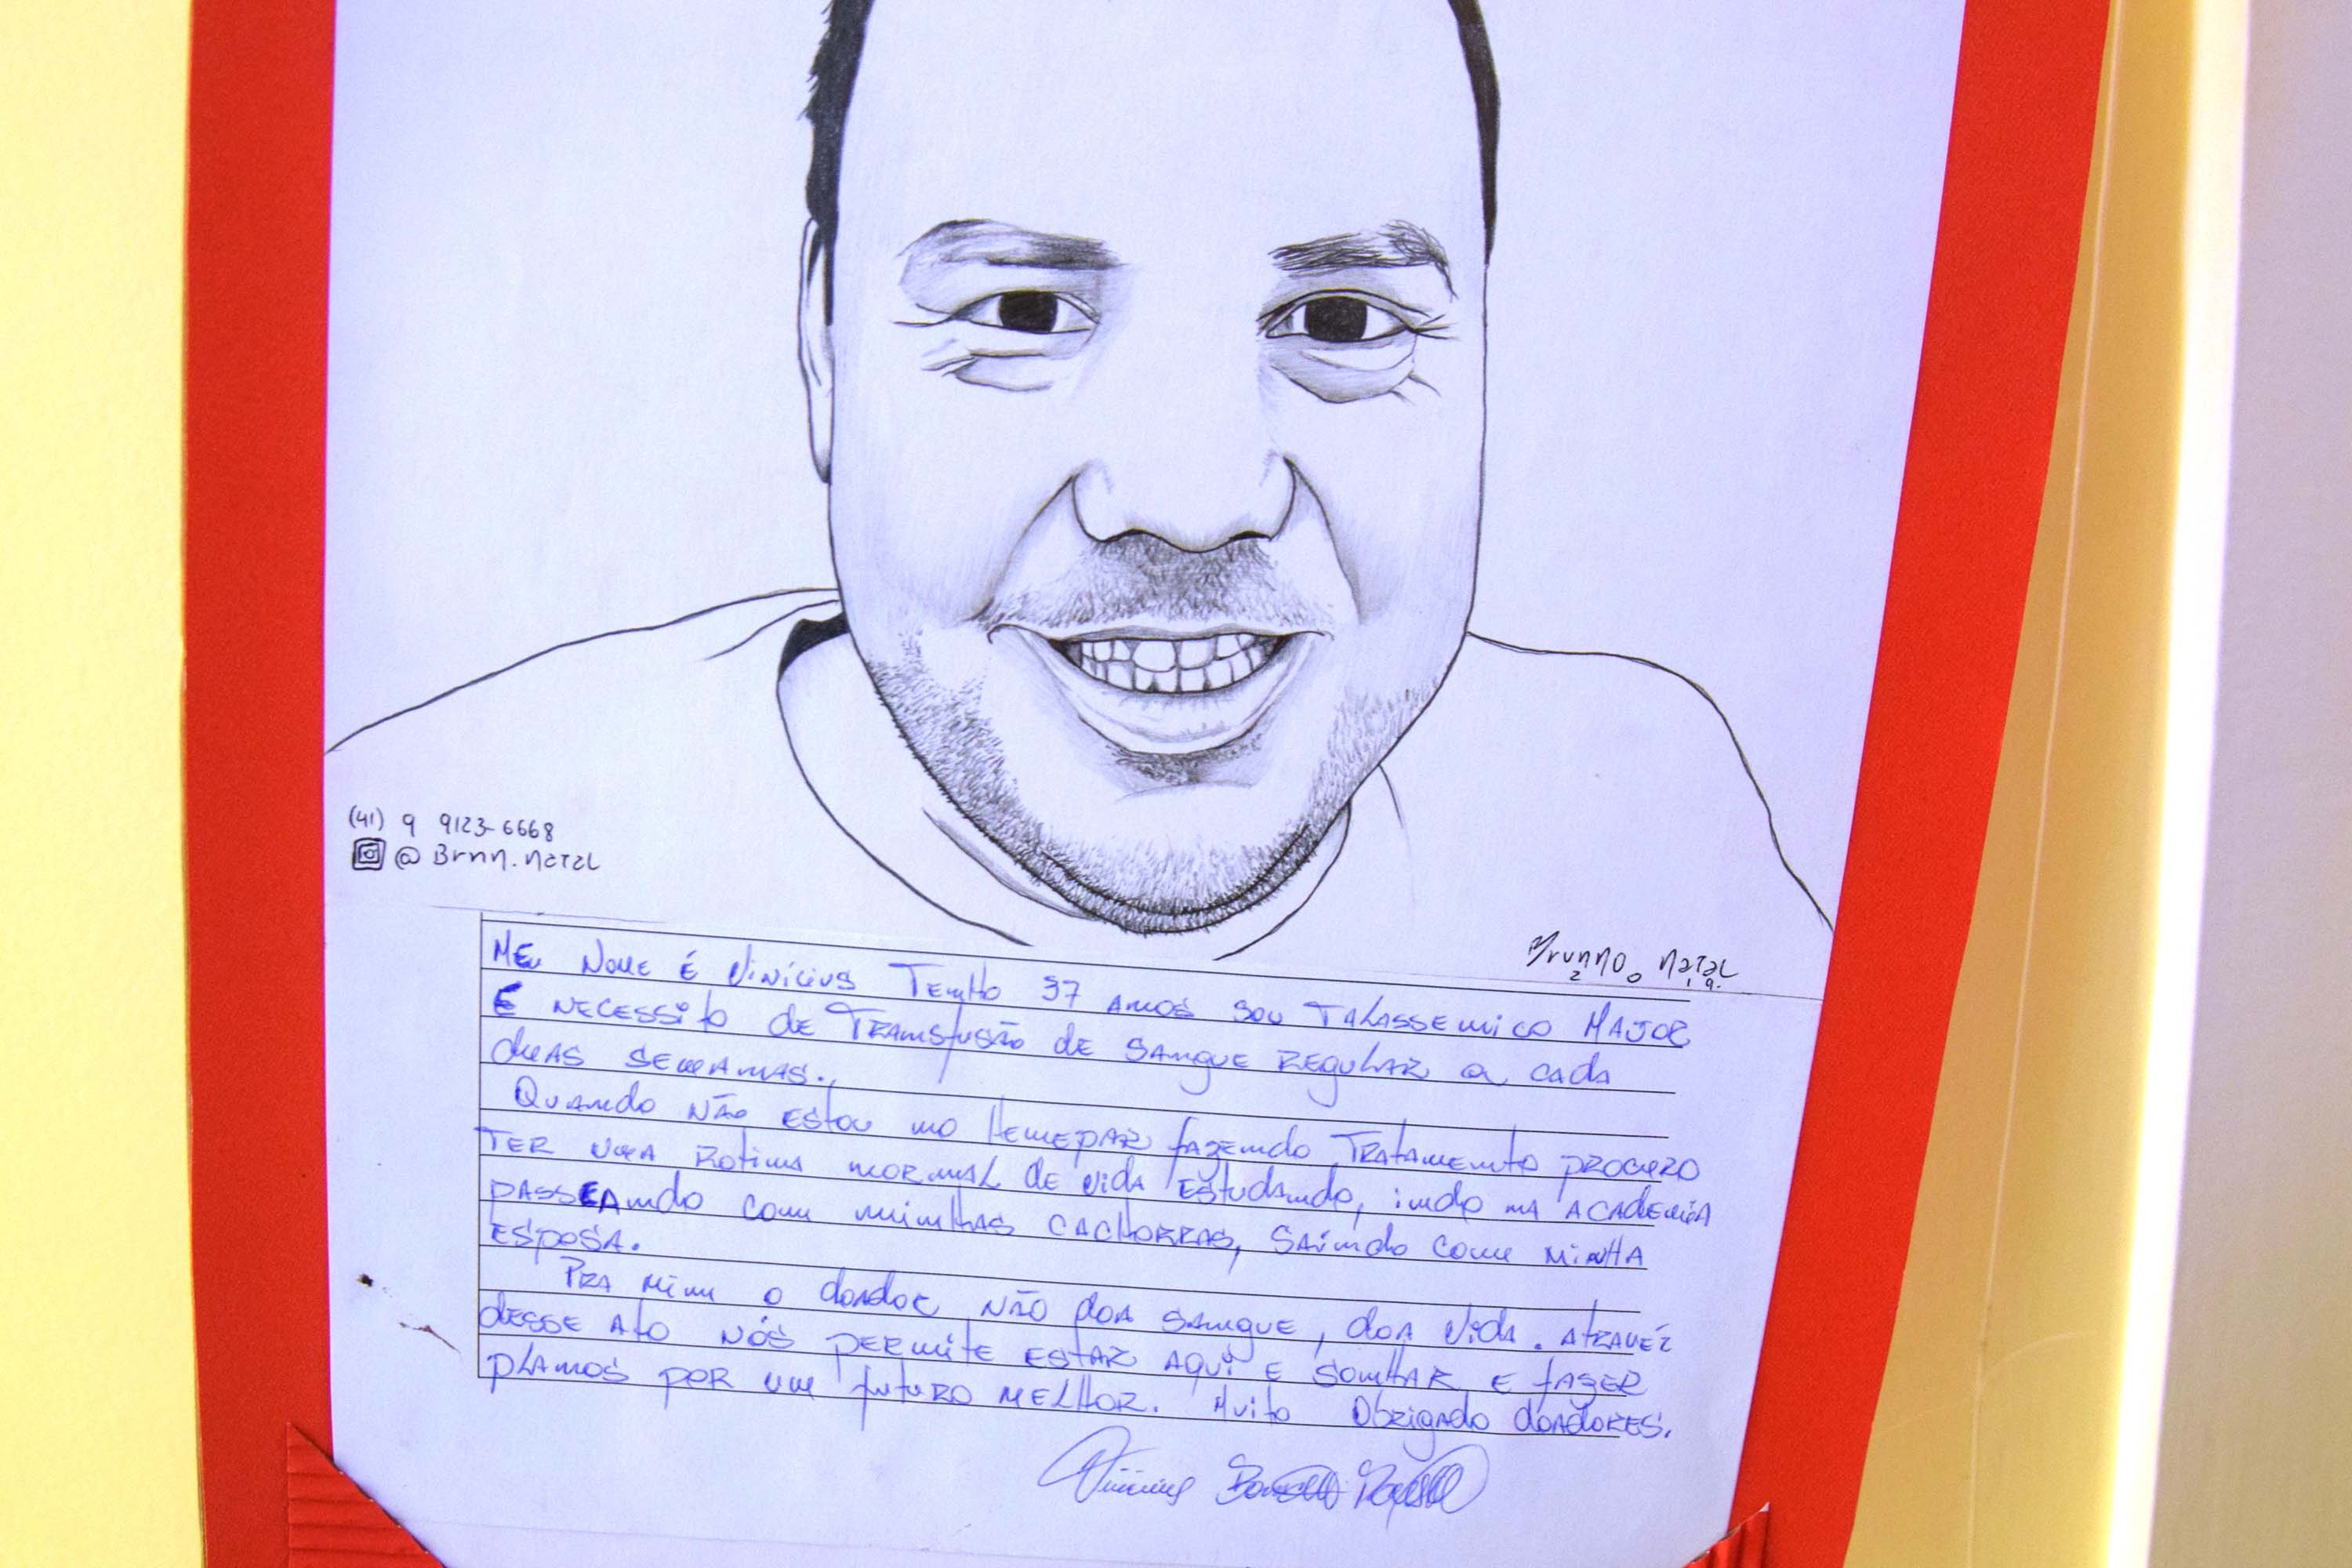 (41) 9 9123-6668
@Brnn.natal
Brunno Natal
2 0 1 9.
Meu nome é Vinícius Tenho 37 anos sou Talassemico Major
E necessito de Transfusão de sangue regular a cada
duas semanas.
Quando não estou no Hemepar fazendo Tratamento procuro
Ter uma rotina normal de vida Estudando, indo na academia
passeando com minhas cachorras, saindo com minha
esposa.
Pra mim o doador não doa sangue, doa vida. Atravéz
desse ato nós permite estar aqui e sonhar e fazer
planos por um futuro melhor. Muito Obrigado doadores.
Vinicius